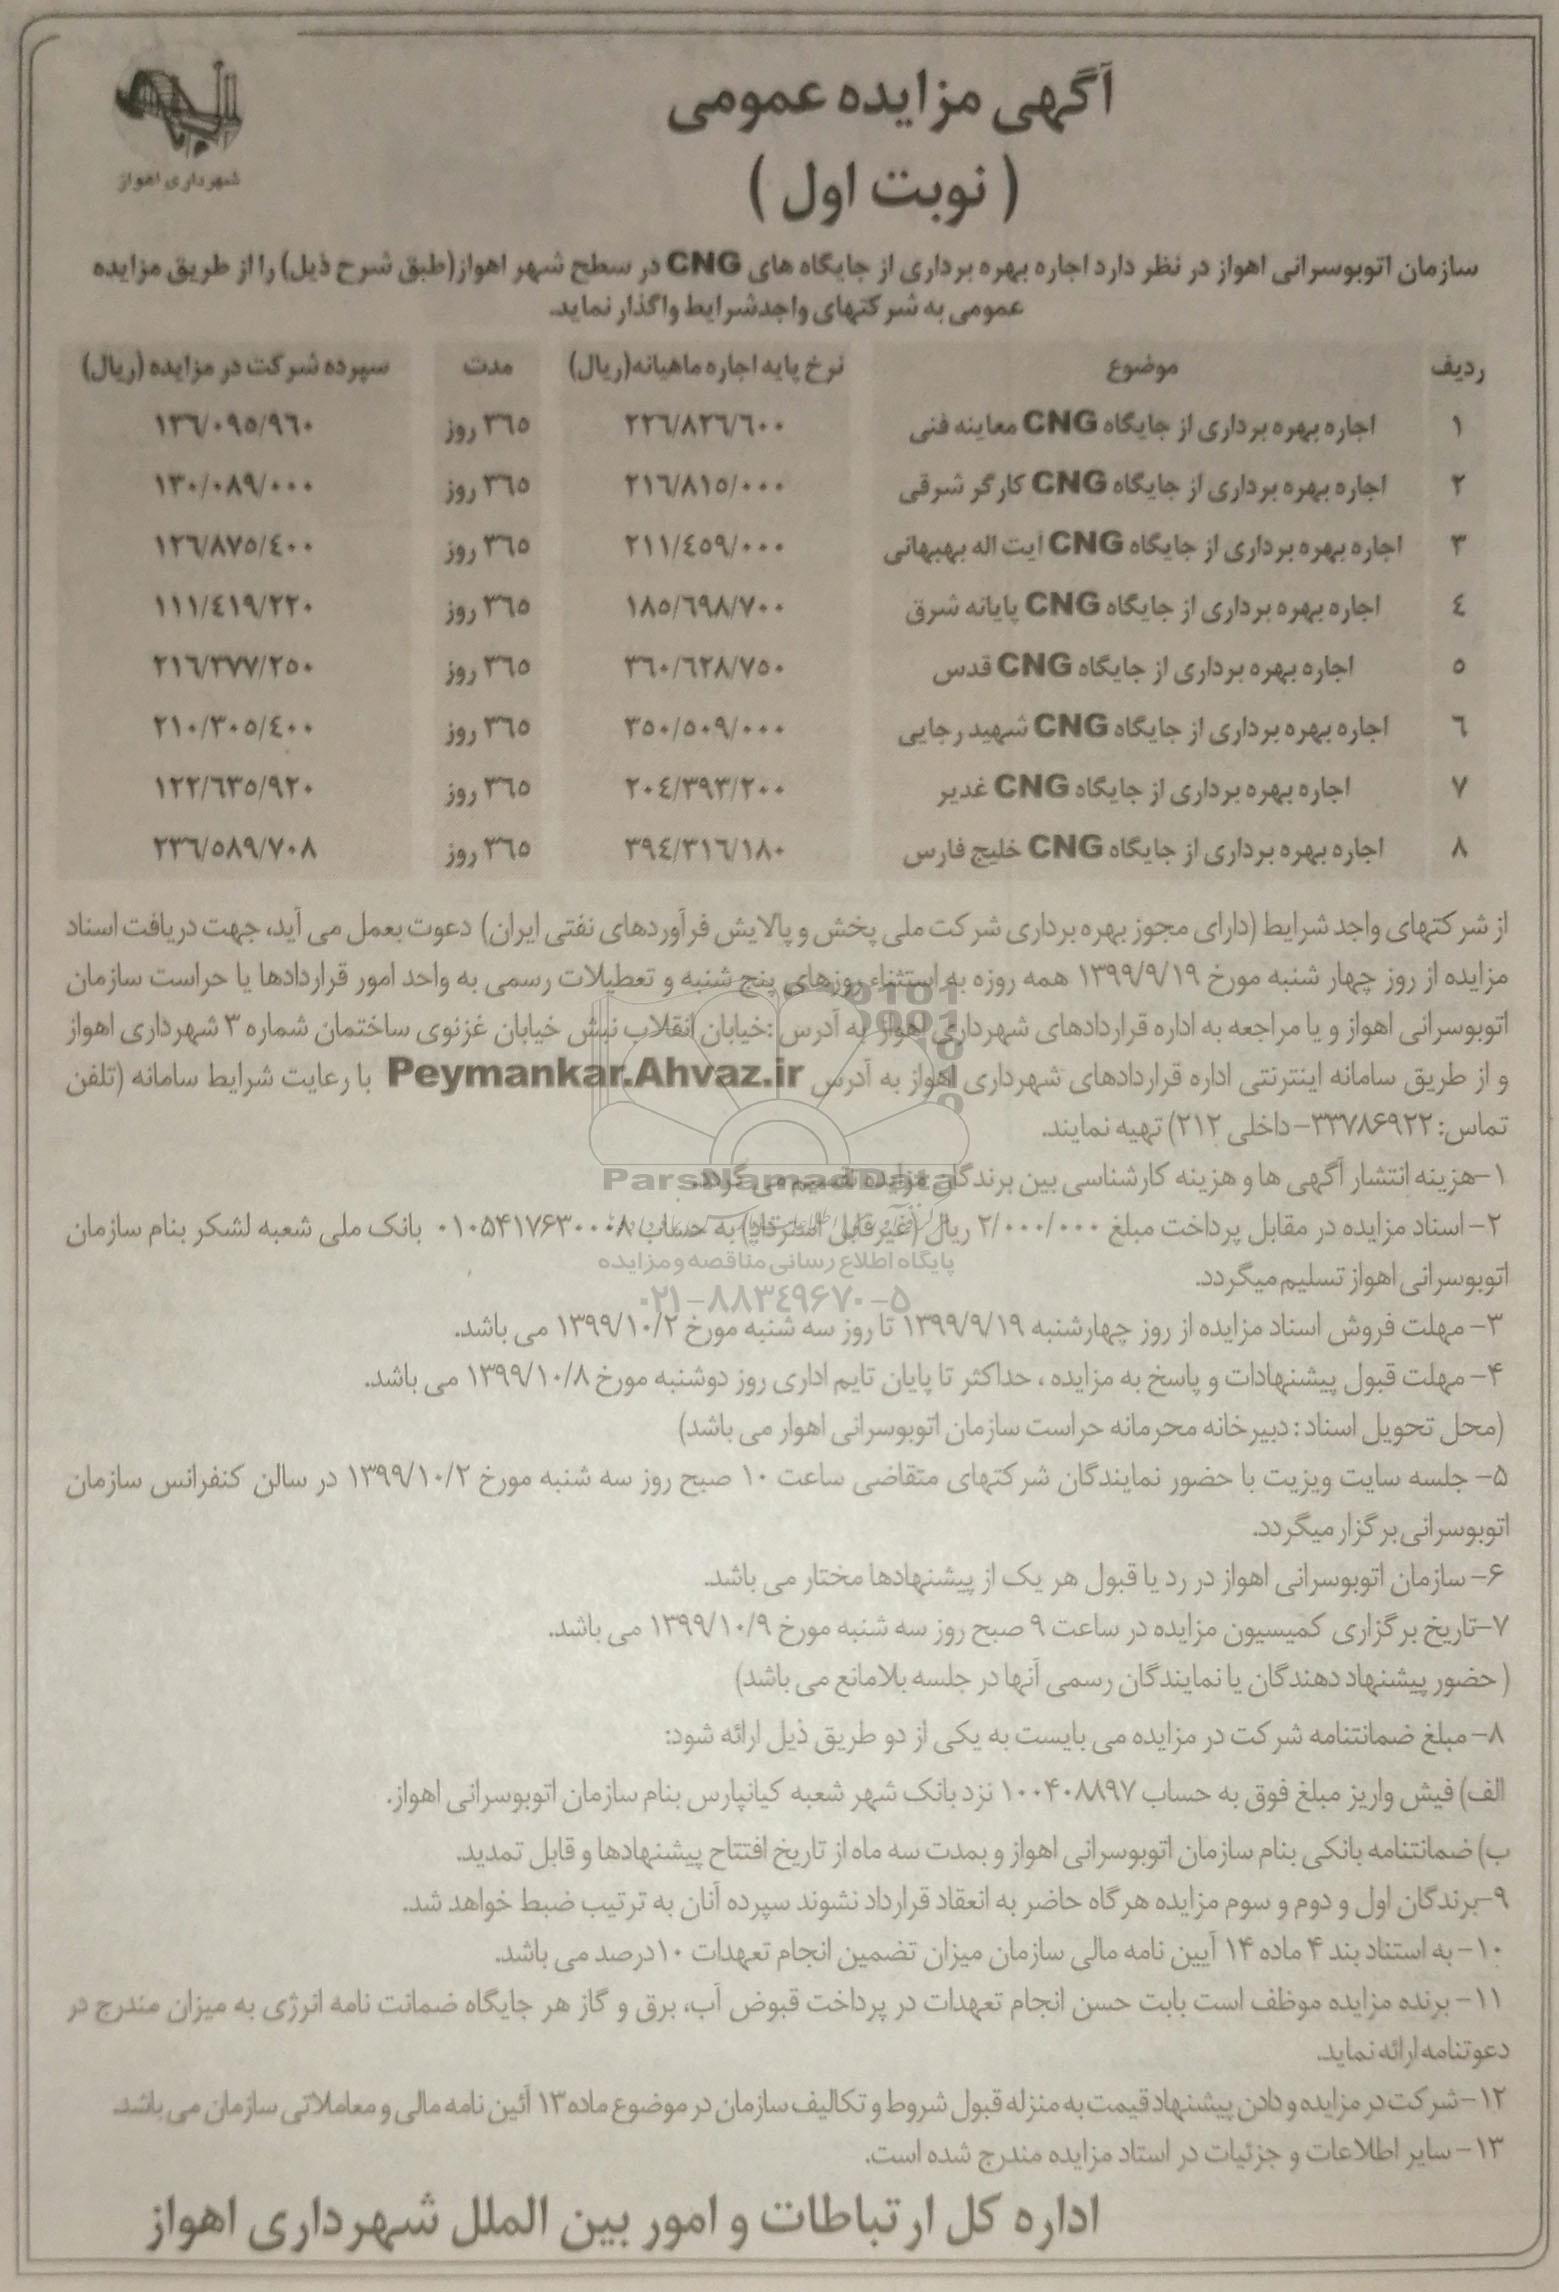 آگهی مزایده عمومی
( نوبت اول )
شهرداری اهواز
سازمان اتوبوسرانی اهواز در نظر دارد اجاره بهره برداری از جایگاه های CNG در سطح شهر اهواز(طبق شرح ذیل) را از طریق مزایده
عمومی به شرکتهای واجدشرایط واگذار نماید.
ردیف موضوع نرخ پایه اجاره ماهیانه(ریال) مدت سپرده شرکت در مزایده (ریال)
۱ اجاره بهره برداری از جایگاه CNG معاینه فنی ۲۲٦/۸۲٦/٦۰۰ ۳٦۵ روز ۱۳٦/۰۹۵/۹٦۰
۲ اجاره بهره برداری از جایگاه CNG کارگر شرقی ۲۱٦/۸۱۵/۰۰۰ ۳٦۵ روز ۱۳۰/۰۸۹/۰۰۰
۳ اجاره بهره برداری از جایگاه CNG آیت اله بهبهانی ۲۱۱/٤۵۹/۰۰۰ ۳٦۵ روز ۱۲٦/۸۷۵/٤۰۰
٤ اجاره بهره برداری از جایگاه CNG پایانه شرق ۱۸۵/٦۹۸/۷۰۰ ۳٦۵ روز ۱۱۱/٤۱۹/۲۲۰
۵ اجاره بهره برداری از جایگاه CNG قدس ۳٦۰/٦۲۸/۷۵۰ ۳٦۵ روز ۲۱٦/۳۷۷/۲۵۰
٦ اجاره بهره برداری از جایگاه CNG شهید رجایی ۳۵۰/۵۰۹/۰۰۰ ۳٦۵ روز ۲۱۰/۳۰۵/٤۰۰
۷ اجاره بهره برداری از جایگاه CNG غدیر ۲۰٤/۳۹۳/۲۰۰ ۳٦۵ روز ۱۲۲/٦۳۵/۹۲۰
۸ اجاره بهره برداری از جایگاه CNG خلیج فارس ۳۹٤/۳۱٦/۱۸۰ ۳٦۵ روز ۲۳٦/۵۸۹/۷۰۸
از شرکتهای واجد شرایط (دارای مجوز بهره برداری شرکت ملی پخش و پالایش فرآوردهای نفتی ایران) دعوت بعمل می آید، جهت دریافت اسناد
مزایده از روز چهار شنبه مورخ ۱۳۹۹/۹/۱۹ همه روزه به استثناء روزهای پنج شنبه و تعطیلات رسمی به واحد امور قراردادها یا حراست سازمان
اتوبوسرانی اهواز و یا مراجعه به اداره قراردادهای شهرداری اهواز به آدرس :خیابان انقلاب نبش خیابان غزنوی ساختمان شماره ۳ شهرداری اهواز
و از طریق سامانه اینترنتی اداره قراردادهای شهرداری اهواز به آدرس Peymankar.Ahvaz.ir با رعایت شرایط سامانه (تلفن
تماس: ۳۳۷۸۶۹۲۲- داخلی ۲۱۲) تهیه نمایند.
۱-هزینه انتشار آگهی ها و هزینه کارشناسی بین برندگان مزایده تقسیم می گردد.
ParsNamadData
۲- اسناد مزایده در مقابل پرداخت مبلغ ۲/۰۰۰/۰۰۰ ریال (غیرقابل استرداد) به حساب ۰۱۰۵۴۱۷۶۳۰۰۰۸ بانک ملی شعبه لشکر بنام سازمان
اتوبوسرانی اهواز تسلیم میگردد.
پایگاه اطلاع رسانی مناقصه و مزایده
۰۲۱-۸۸۳٤۹٦۷۰-۵
۳- مهلت فروش اسناد مزایده از روز چهارشنبه ۱۳۹۹/۹/۱۹ تا روز سه شنبه مورخ ۱۳۹۹/۱۰/۲ می باشد.
۴- مهلت قبول پیشنهادات و پاسخ به مزایده ، حداکثر تا پایان تایم اداری روز دوشنبه مورخ ۱۳۹۹/۱۰/۸ می باشد.
(محل تحویل اسناد : دبیرخانه محرمانه حراست سازمان اتوبوسرانی اهوار می باشد)
۵- جلسه سایت ویزیت با حضور نمایندگان شرکتهای متقاضی ساعت ۱۰ صبح روز سه شنبه مورخ ۱۳۹۹/۱۰/۲ در سالن کنفرانس سازمان
اتوبوسرانی برگزار میگردد.
۶- سازمان اتوبوسرانی اهواز در رد یا قبول هر یک از پیشنهادها مختار می باشد.
۷-تاریخ برگزاری کمیسیون مزایده در ساعت ۹ صبح روز سه شنبه مورخ ۱۳۹۹/۱۰/۹ می باشد.
( حضور پیشنهاد دهندگان یا نمایندگان رسمی آنها در جلسه بلامانع می باشد)
۸- مبلغ ضمانتنامه شرکت در مزایده می بایست به یکی از دو طریق ذیل ارائه شود:
الف) فیش واریز مبلغ فوق به حساب ۱۰۰۴۰۸۸۹۷ نزد بانک شهر شعبه کیانپارس بنام سازمان اتوبوسرانی اهواز.
ب) ضمانتنامه بانکی بنام سازمان اتوبوسرانی اهواز و بمدت سه ماه از تاریخ افتتاح پیشنهادها و قابل تمدید.
۹-برندگان اول و دوم و سوم مزایده هر گاه حاضر به انعقاد قرارداد نشوند سپرده آنان به ترتیب ضبط خواهد شد.
۱۰- به استناد بند ۴ ماده ۱۴ آیین نامه مالی سازمان میزان تضمین انجام تعهدات ۱۰درصد می باشد.
۱۱- برنده مزایده موظف است بابت حسن انجام تعهدات در پرداخت قبوض آب، برق و گاز هر جایگاه ضمانت نامه انرژی به میزان مندرج در
دعوتنامه ارائه نماید.
۱۲-شرکت در مزایده و دادن پیشنهاد قیمت به منزله قبول شروط و تکالیف سازمان در موضوع ماده ۱۳ آئین نامه مالی و معاملاتی سازمان می باشد.
۱۳- سایر اطلاعات و جزئیات در استاد مزایده مندرج شده است.
اداره کل ارتباطات و امور بین الملل شهرداری اهواز